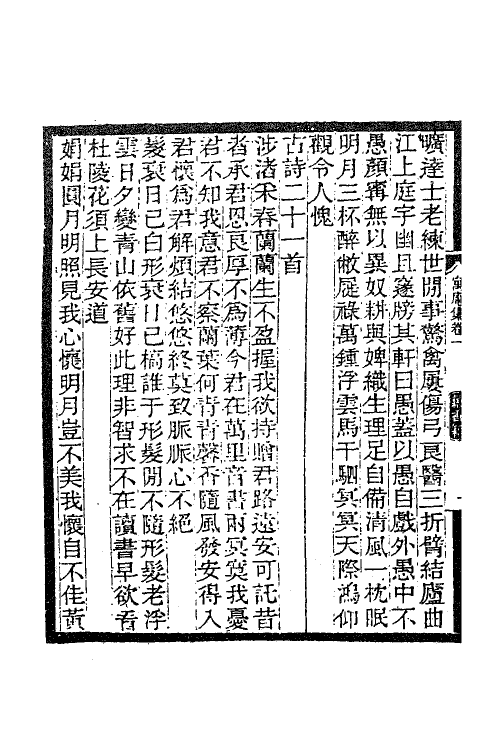 曠達士老練世閒事驚禽屢傷弓良醫三折臂結廬曲
江上庭宇幽且邃牓其軒曰愚蓋以愚自戲外愚中不
愚顏甯無以異奴耕與婢織生理足自備清風一枕眠
明月三杯醉敝屣祿萬鍾浮雲馬千駟冥冥天際鴻仰
觀令人愧
古詩二十一首
涉渚采春蘭蘭生不盈握我欲持贈君路遠安可託昔
者承君恩良厚不為薄今君在萬里音書兩寞寞我憂
君不知我意君不察蘭葉何青青馨香隨風發安得入
君懷為君解煩結悠悠終莫致脈脈心不絕
髮衰日已白形衰日已槁誰于形髮閒不隨形髮老浮
雲日夕變青山依舊好此理非智求不在讀書早欲看
杜陵花須上長安道
娟娟圓月明照見我心懷明月豈不美我懷自不佳黃